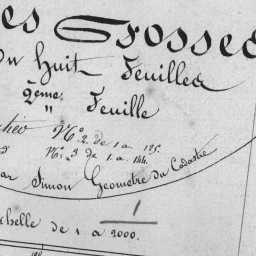 es Grosses
En Huit Feuilles
2ème " Feuille
N° 2. de 1 a 125.
N° 3 de 1 a 144.
par Simon Geometre du Cadastre
1
chelle de 1 a 2000.